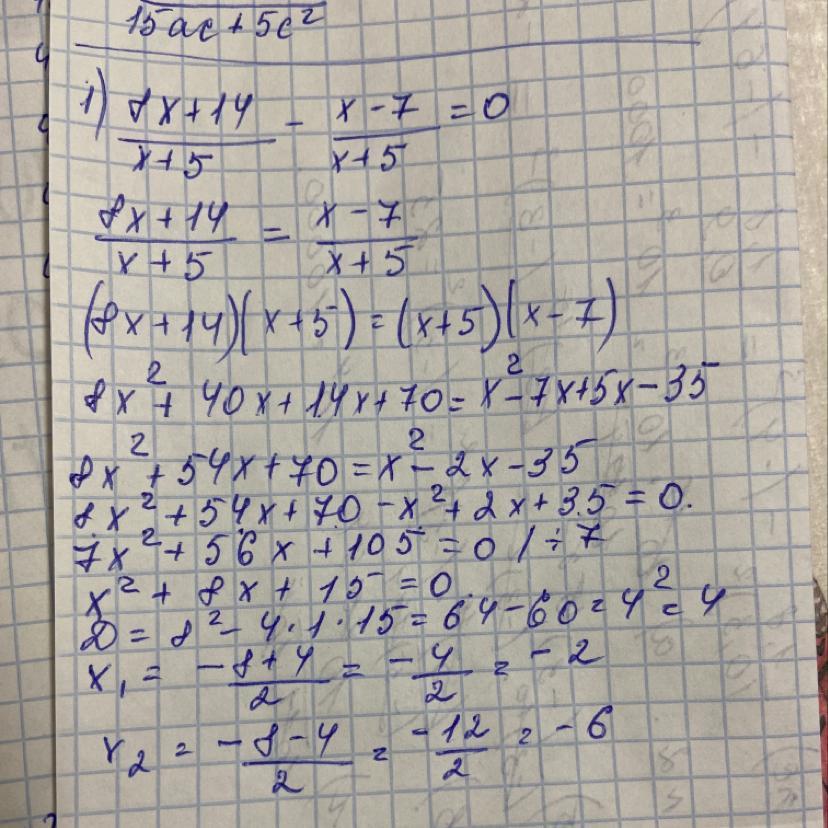 15ac + 5c²
1) (8x+14)/(x+5) - (x-7)/(x+5) = 0
(8x+14)/(x+5) = (x-7)/(x+5)
(8x+14)(x+5) = (x+5)(x-7)
8x² + 40x + 14x + 70 = x² - 7x + 5x - 35
8x² + 54x + 70 = x² - 2x - 35
8x² + 54x + 70 - x² + 2x + 35 = 0.
7x² + 56x + 105 = 0 / ÷ 7
x² + 8x + 15 = 0.
D = 8² - 4·1·15 = 64 - 60 = 4² = 4
x₁ = (-8+4)/2 = -4/2 = -2
x₂ = (-8-4)/2 = -12/2 = -6